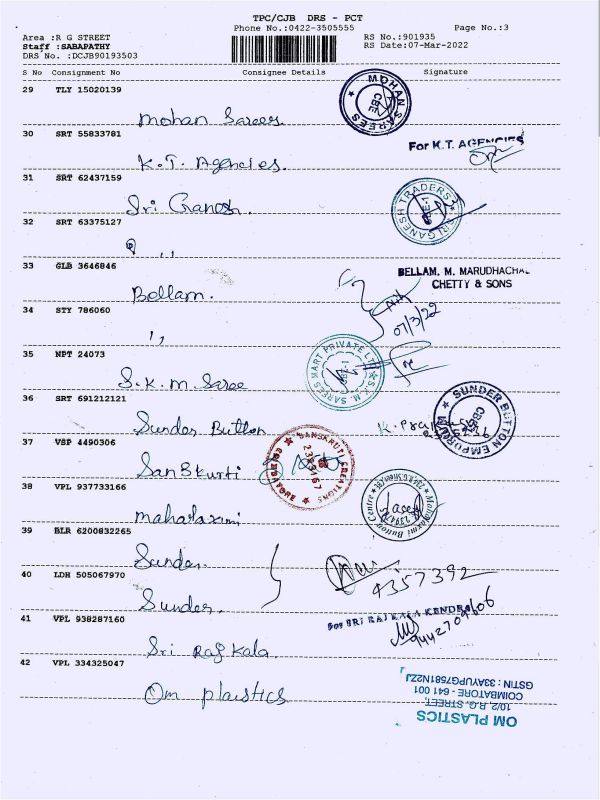 TPC/CJB DRS - PCT
Phone No.:0422-3505555
Page No.:3
Area :R G STREET
RS No.:901935
Staff :SABAPATHY
RS Date:07-Mar-2022
DRS No. :DCJB90193503
S No Consignment No Consignee Details Signature
29 TLY 15020139
Mohan Sarees
MOHAN SAREES
CBE
30 SRT 55833781
For K.T. AGENCIES
K.T. Agencies.
31 SRT 62437159
Sri Ganesh.
SRI GANESH TRADERS
CBE-1
32 SRT 63375127
,,
33 GLB 3646846
BELLAM. M. MARUDHACHALA
CHETTY & SONS
Bellam.
34 STY 786060
07/3/22
,,
35 NPT 24073
S.K.M. SAREES MART PRIVATE LTD
S.K.M. Saree
36 SRT 691212121
SUNDER BUTTON EMPORIUM
CBE
Sunder Button
37 VSP 4490306
SANSKRUTI CREATIONS
COIMBATORE
Sanskurti
38 VPL 937733166
Mahalaxmi Button Centre
mahalaxmi
39 BLR 6200832265
Sunder
40 LDH 505067970
9357392
Sunder.
41 VPL 938287160
For SRI RAJ KALA KENDRA
9442709606
Sri Raj Kala
42 VPL 334325047
Om plaistics
OM PLASTICS
10/2, R.G. STREET,
COIMBATORE - 641 001
GSTIN : 33AYUPG7581N2ZJ